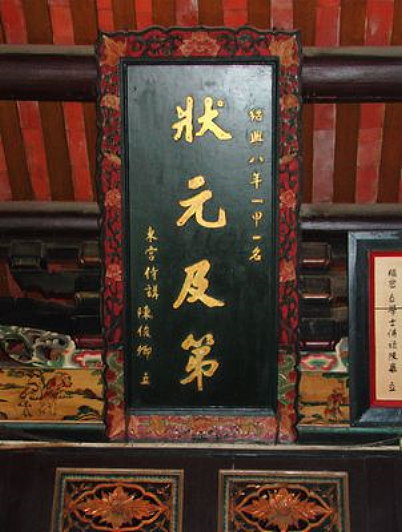 紹興八年一甲一名
狀元及第
東宮侍講 陳俊卿 立